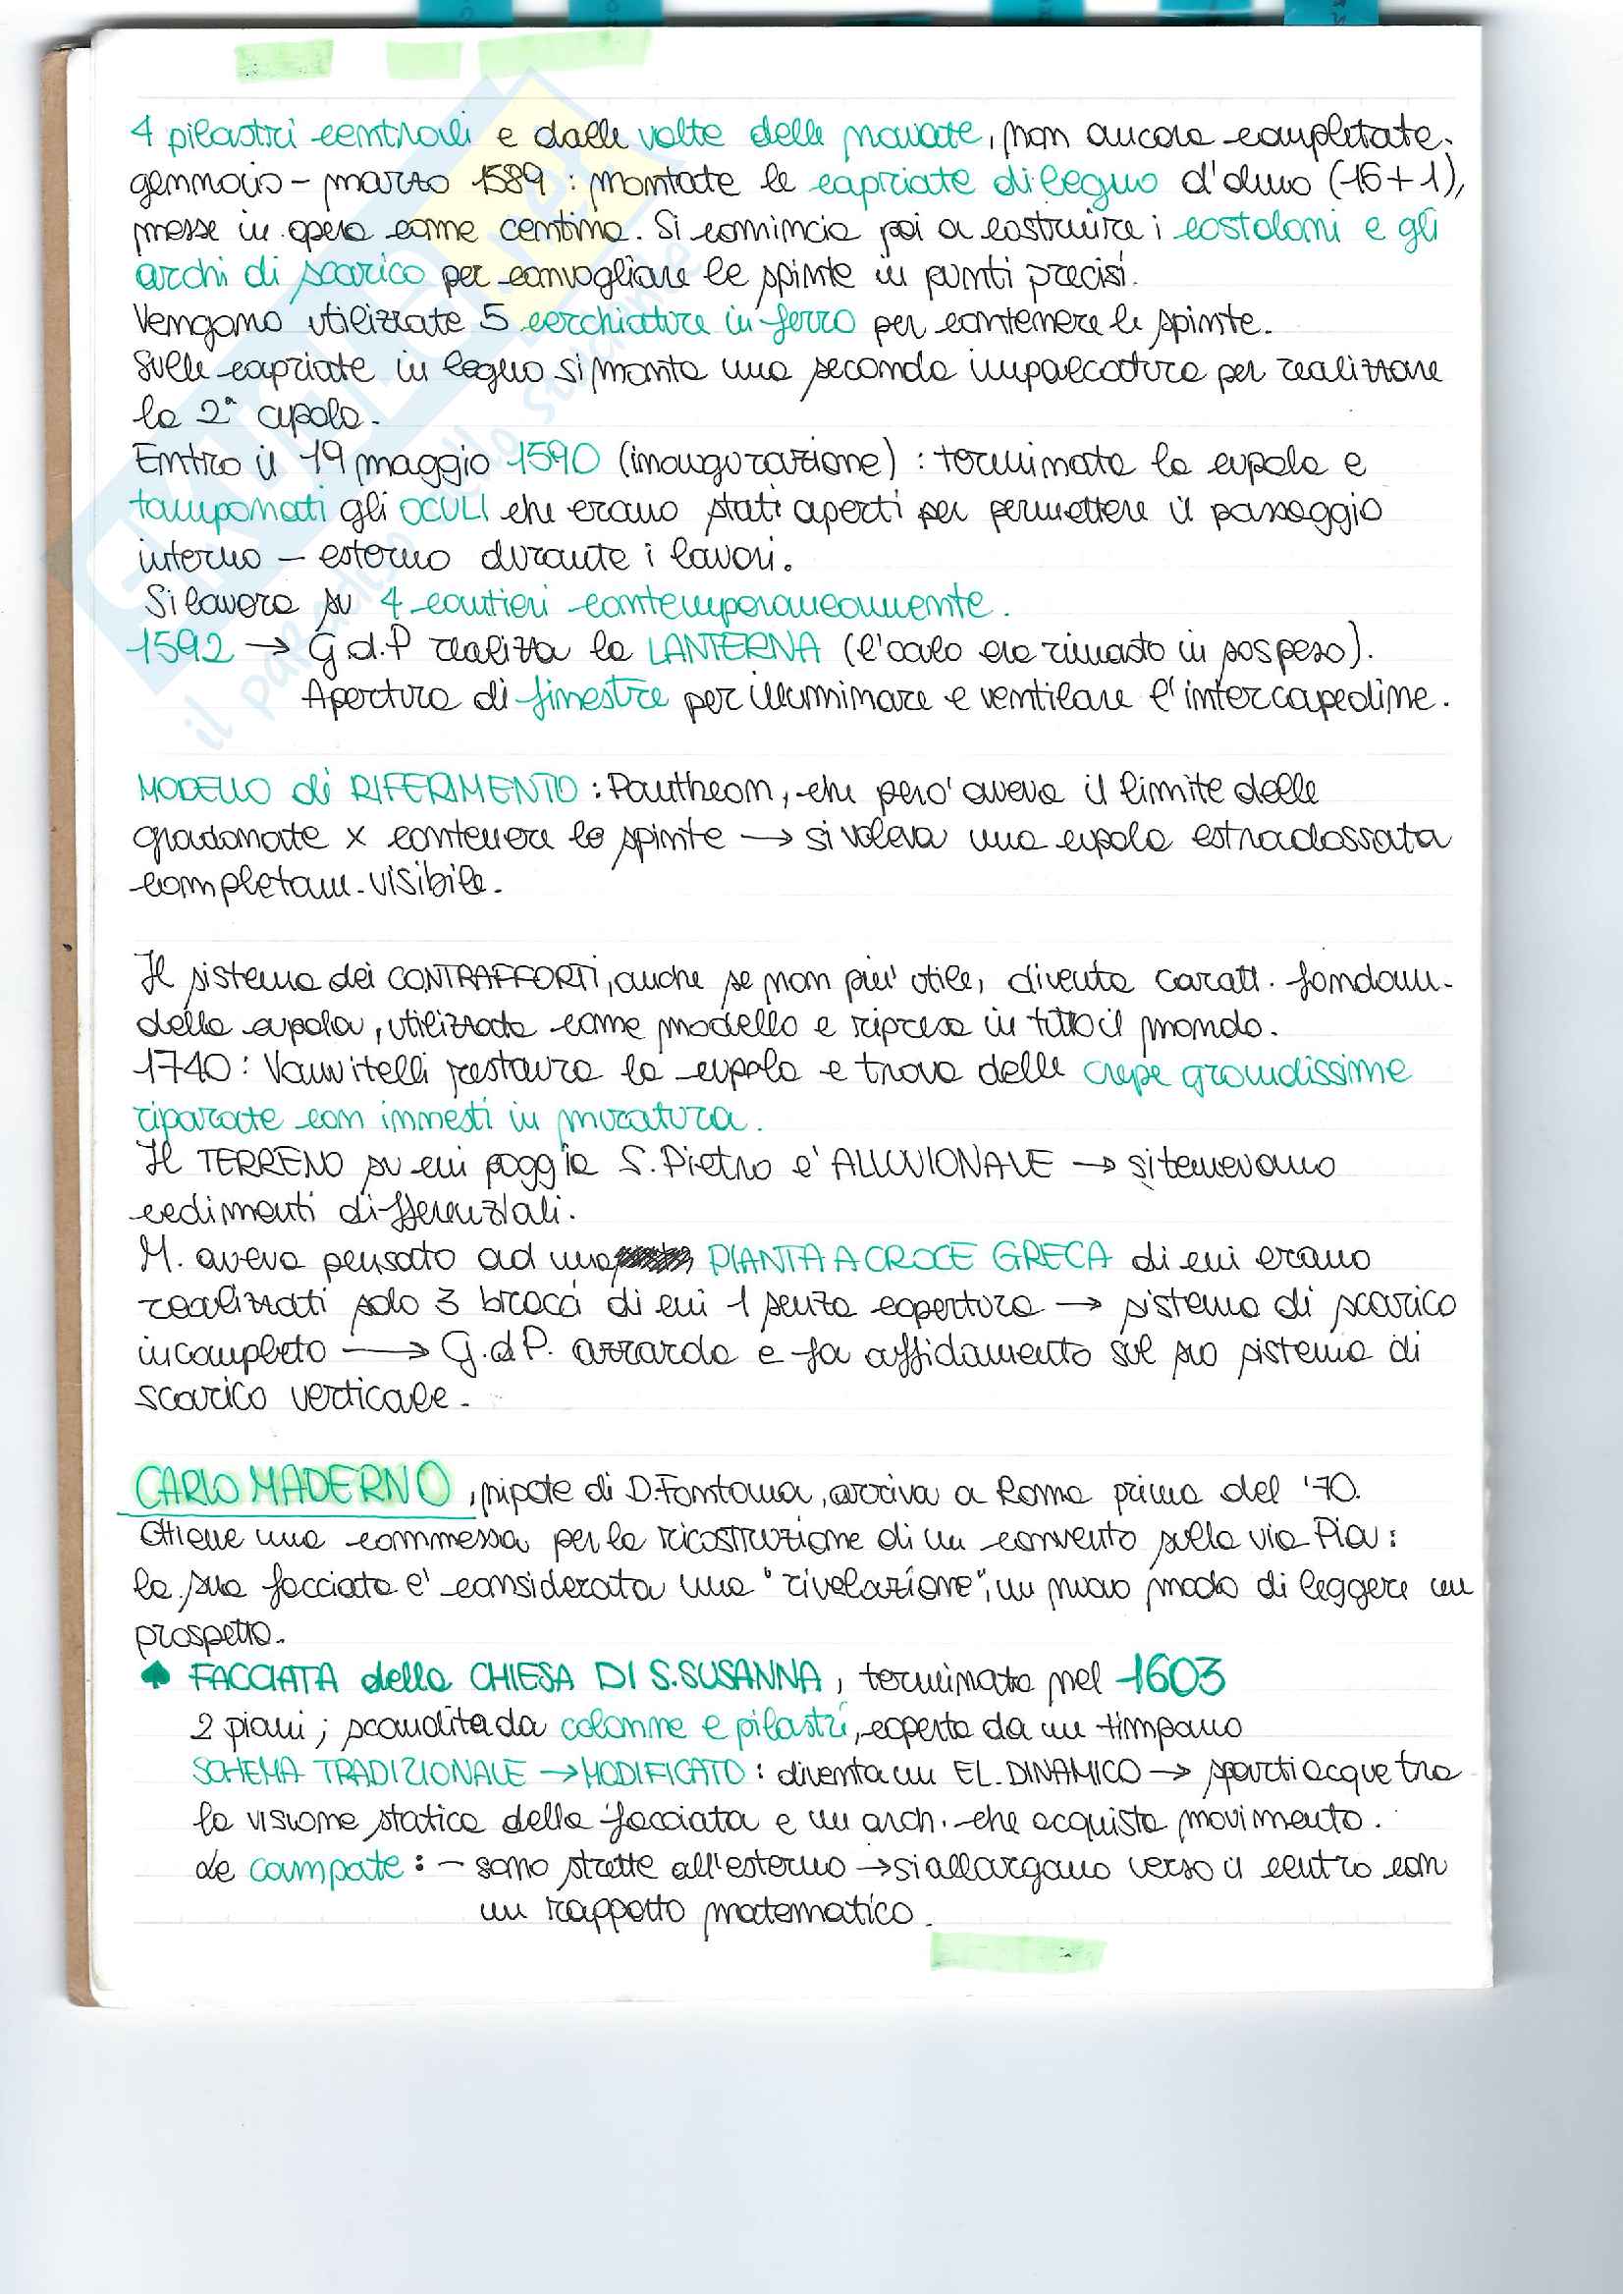 4 pilastri centrali e dalle volte delle navate, non ancora completate.
gennaio - marzo 1589 : montate le capriate di legno d'olmo (16+1),
messe in opera come centina. Si comincia poi a costruire i costoloni e gli
archi di scarico per convogliare le spinte in punti precisi.
Vengono utilizzate 5 cerchiature in ferro per contenere le spinte.
Sulle capriate in legno si monta una seconda impalcatura per realizzare
la 2ª cupola.
Entro il 19 maggio 1590 (inaugurazione) : terminata la cupola e
tamponati gli OCULI che erano stati aperti per permettere il passaggio
interno - esterno durante i lavori.
Si lavora su 4 cantieri contemporaneamente.
1592 → G d.P realizza la LANTERNA (l'occhio era rimasto in sospeso).
Apertura di finestre per illuminare e ventilare l'intercapedine.
MODELLO di RIFERIMENTO : Pantheon, che pero' aveva il limite delle
gradonate x contenere le spinte → si voleva una cupola estradossata
completam. visibile.
Il sistema dei CONTRAFFORTI, anche se non piu' utile, diventa caratt. fondam.
della cupola, utilizzata come modello e ripresa in tutto il mondo.
1740 : Vanvitelli restaura la cupola e trova delle crepe grandissime
riparate con innesti in muratura.
Il TERRENO su cui poggia S. Pietro e' ALLUVIONALE → si temevano
cedimenti differenziali.
M. aveva pensato ad una PIANTA A CROCE GRECA di cui erano
realizzati solo 3 bracci di cui 1 senza copertura → sistema di scarico
incompleto → G.d P. azzarda e fa affidamento sul suo sistema di
scarico verticale.
CARLO MADERNO, nipote di D. Fontana, arriva a Roma prima del '70.
Ottiene una commessa per la ricostruzione di un convento sulla via Pia :
la sua facciata e' considerata una "rivelazione", un nuovo modo di leggere un
prospetto.
♠ FACCIATA della CHIESA DI S. SUSANNA, terminata nel 1603
2 piani ; scandita da colonne e pilastri, coperta da un timpano
SCHEMA TRADIZIONALE → MODIFICATO : diventa un EL. DINAMICO → spartiacque tra
la visione statica della facciata e un arch. che acquista movimento.
Le campate : - sono strette all'esterno → si allargano verso il centro con
un rapporto matematico.